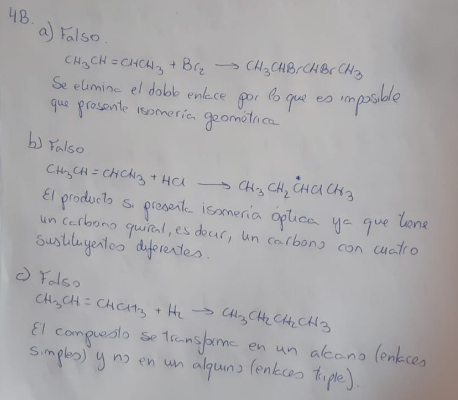 4B.
a) Falso.
CH₃CH = CHCH₃ + Br₂ → CH₃CHBrCHBrCH₃
Se elimina el doble enlace por lo que es imposible
que presente isomería geométrica
b) Falso
CH₃CH = CHCH₃ + HCl → CH₃CH₂ĊHClCH₃
El producto si presenta isomería óptica ya que tiene
un carbono quiral, es decir, un carbono con cuatro
sustituyentes diferentes.
c) Falso
CH₃CH = CHCH₃ + H₂ → CH₃CH₂CH₂CH₃
El compuesto se transforma en un alcano (enlaces
simples) y no en un alquino (enlaces triple).